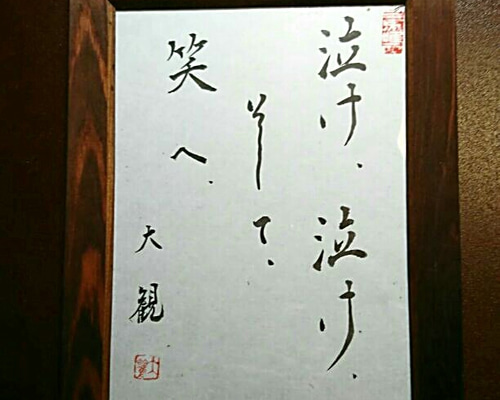 泣け、泣け、
そして、
笑へ、
大観